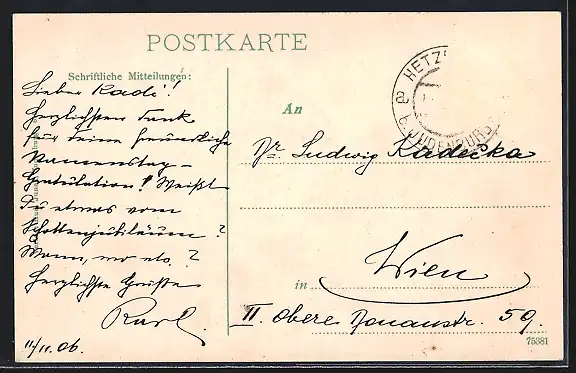 POSTKARTE
Schriftliche Mitteilungen:
Lieber Kade!
Herzlichsten Dank
für deine freundliche
Namenstag-
Gratulation! Weißt
Du etwas vom
Schottenjubiläum?
Wann, wo etc.?
Herzlichste Grüße
Karl.
11/11.06.
HETZ
b. JUDENBURG
An
Dr. Ludwig Kadečka
in Wien
II. Obere Donaustr. 59.
75381